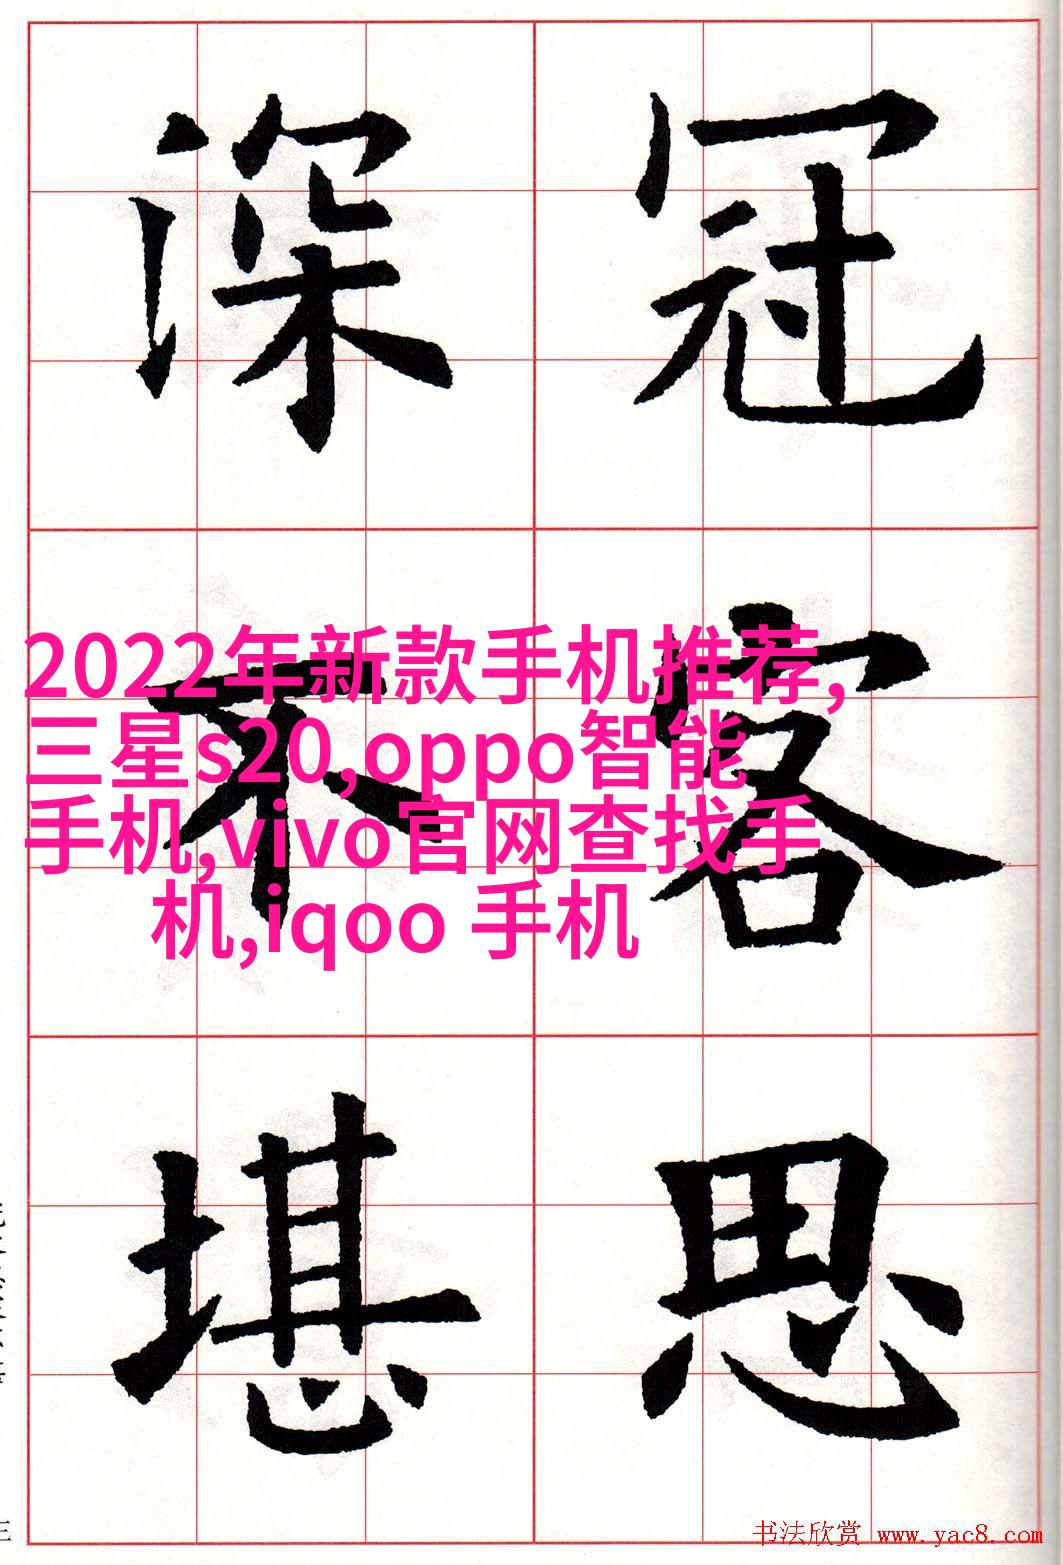 冠客思
深不堪
2022年新款手机推荐,
三星s20,oppo智能
手机,vivo官网查找手
机,iqoo 手机
书法欣赏 www.yac8.com